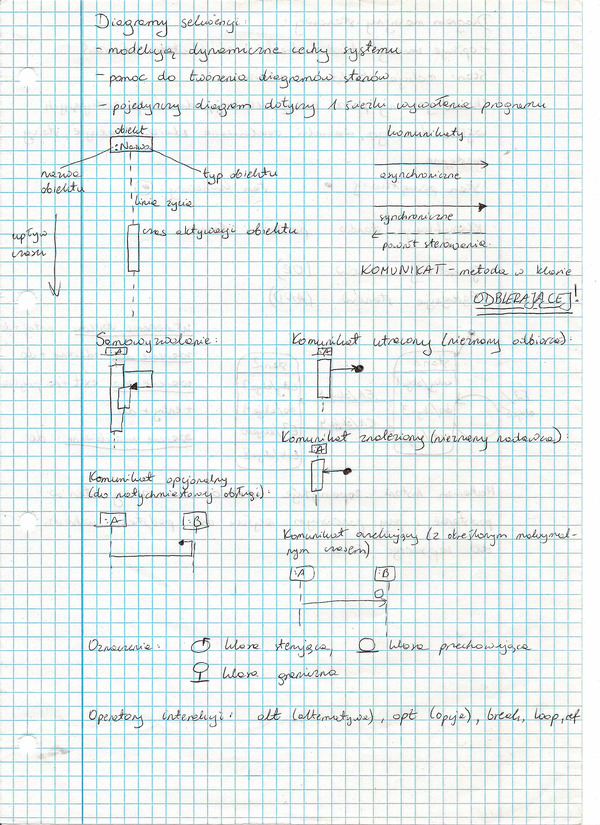 Diagramy sekwencji:
- modelują dynamiczne cechy systemu
- pomoc do tworzenia diagramów stanów
- pojedynczy diagram dotyczy 1 ścieżki wywołania programu
obiekt
:Nazwa
nazwa obiektu
typ obiektu
linia życia
czas aktywacji obiektu
upływ czasu
komunikaty
asynchroniczne
synchroniczne
powrót sterowania
KOMUNIKAT - metoda w klasie
ODBIERAJĄCEJ!
Samowyzwolenie:
:A
Komunikat utracony (nieznany odbiorca):
:A
Komunikat znaleziony (nieznany nadawca):
:A
Komunikat opcjonalny
(do natychmiastowej obsługi):
:A :B
Komunikat oczekujący (z określonym maksymal-
nym czasem)
:A :B
Oznaczenia: klasa sterująca, klasa przechowująca
klasa graniczna
Operatory interakcji: alt (alternatywa), opt (opcja), break, loop, ref